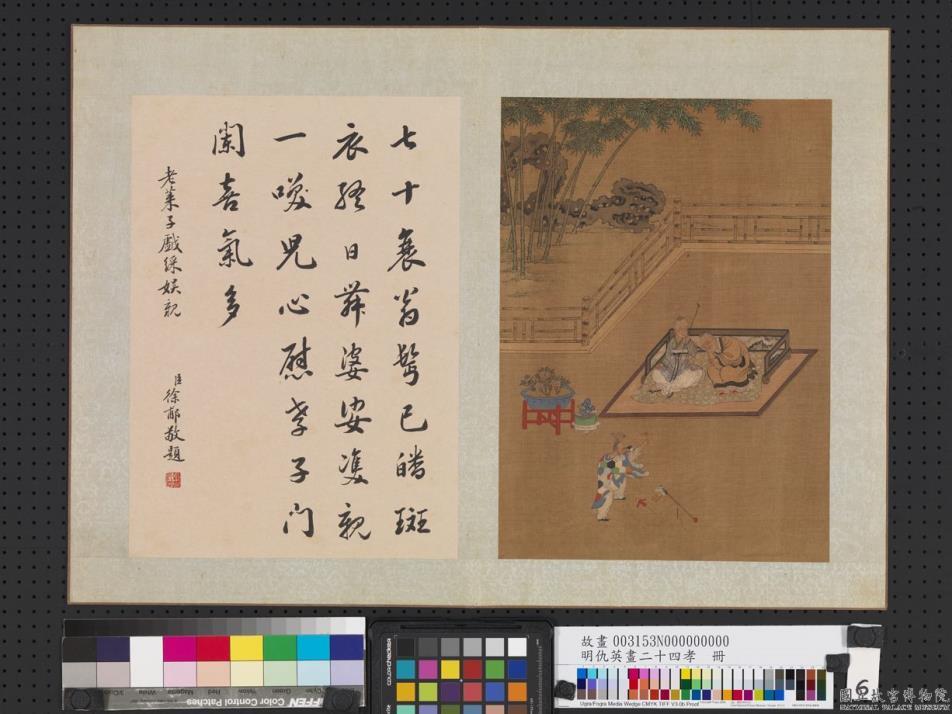 七十衰翁鬢已皤斑
衣終日舞婆娑雙親
一噯兒心慰孝子门
闌喜氣多
老萊子戲綵娱親
臣徐郙敬題
故畫 003153N000000000
明仇英畫二十四孝 冊
Ugra/Fogra Media Wedge CMYK TIFF V3.0b Proof
TIFFEN Color Control Patches
6
國立故宮博物院
NATIONAL PALACE MUSEUM